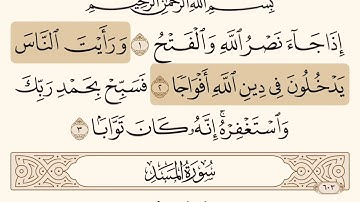 بِسْمِ اللَّهِ الرَّحْمَٰنِ الرَّحِيمِ
إِذَا جَآءَ نَصْرُ ٱللَّهِ وَٱلْفَتْحُ ١ وَرَأَيْتَ ٱلنَّاسَ
يَدْخُلُونَ فِى دِينِ ٱللَّهِ أَفْوَاجًا ٢ فَسَبِّحْ بِحَمْدِ رَبِّكَ
وَٱسْتَغْفِرْهُ ۚ إِنَّهُۥ كَانَ تَوَّابًۢا ٣
سُورَةُ المَسَدِ
٦٠٣